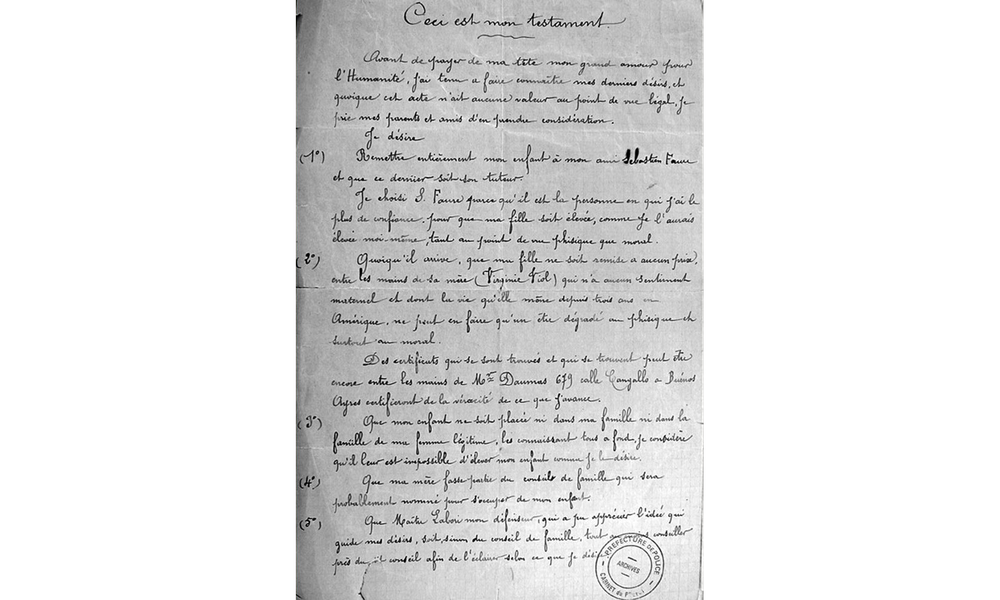 Ceci est mon testament.
Avant de payer de ma tête mon grand amour pour
l'Humanité, j'ai tenu a faire connaître mes derniers désirs, et
quoique cet acte n'ait aucune valeur au point de vue légal, je
prie mes parents et amis d'en prendre considération.
Je désire
(1°) Remettre entièrement mon enfant à mon ami Sébastien Faure
et que ce dernier soit son tuteur.
Je choisi S. Faure parce qu'il est la personne en qui j'ai le
plus de confiance, pour que ma fille soit élevée, comme je l'aurais
élevée moi-même, tant au point de vue phisique que moral.
(2°) Quoiqu'il arrive, que ma fille ne soit remise a aucun prix,
entre les mains de sa mère (Virginie Viol) qui n'a aucun sentiment
maternel et dont la vie qu'elle mène depuis trois ans en
Amérique, ne peut en faire qu'un être dégradé au phisique et
surtout au moral.
Des certificats qui se sont trouvés et qui se trouvent peut être
encore entre les mains de Daumas 679 calle Cangallo a Buénos
Ayres certifieront de la véracité de ce que j'avance.
(3°) Que mon enfant ne soit placée ni dans ma famille ni dans la
famille de ma femme légitime, les connaissant tous a fond, je considère
qu'il leur est impossible d'élever mon enfant comme je le désire.
(4°) Que ma mère fasse partie du conseils de famille qui sera
probablement nommé pour s'occuper de mon enfant.
(5°) Que Maître Labori mon défenseur, qui a pu apprécier l'idée qui
guide mes désirs, soit, sinon du conseil de famille, tout conseiller
près du, conseil afin de l'éclairer selon ce que je
PREFECTURE DE POLICE
ARCHIVES
CABINET du